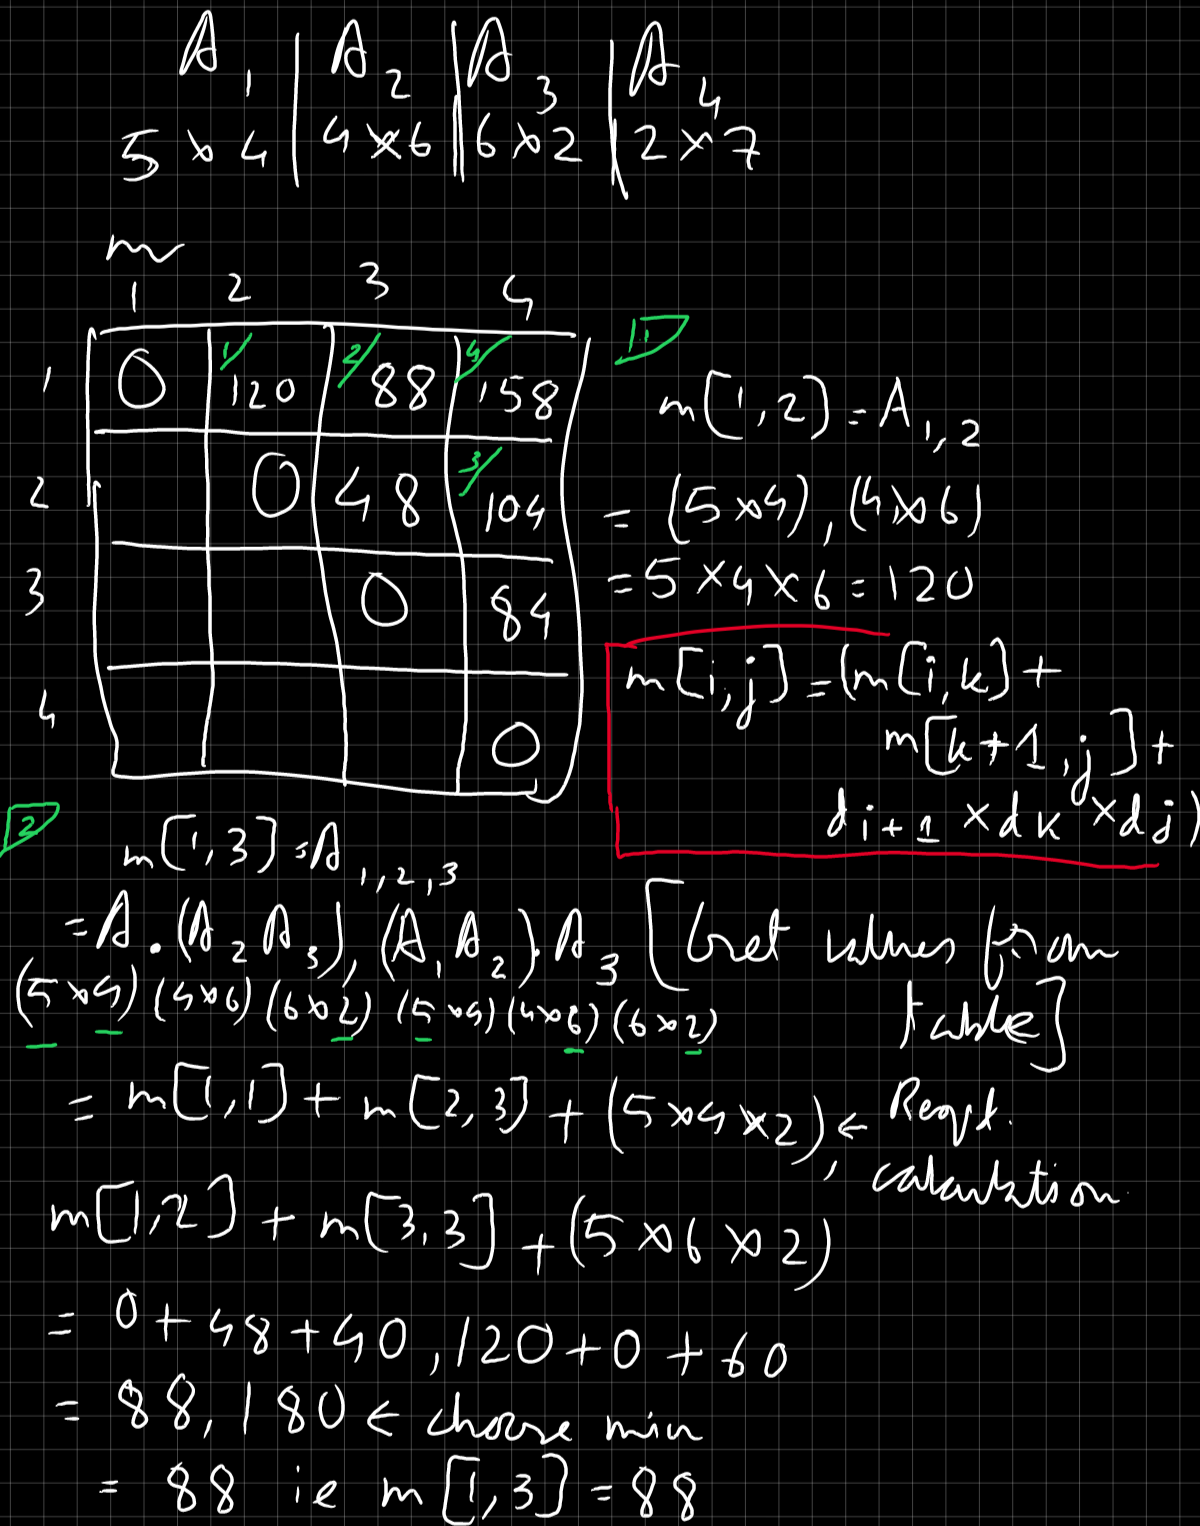 A1 | A2 | A3 | A4
5 × 4 | 4 × 6 | 6 × 2 | 2 × 7
m
1 2 3 4
1 0 1/ 120 2/ 88 4/ 158
2 0 48 3/ 104
3 0 84
4 0
1.
m[1,2] = A1,2
= (5×4), (4×6)
= 5×4×6 = 120
m[i,j] = (m[i,k] +
m[k+1,j] +
di+1 × dk × dj)
2
m[1,3] = A1,2,3
= A.(A2 A3), (A1 A2).A3 [Get values from
table]
(5×4) (4×6) (6×2) (5×4) (4×6) (6×2)
= m[1,1] + m[2,3] + (5×4×2), ← Reqd.
calculation
m[1,2] + m[3,3] + (5×6×2)
= 0+48+40, 120+0+60
= 88, 180 ← choose min
= 88 ie m[1,3] = 88